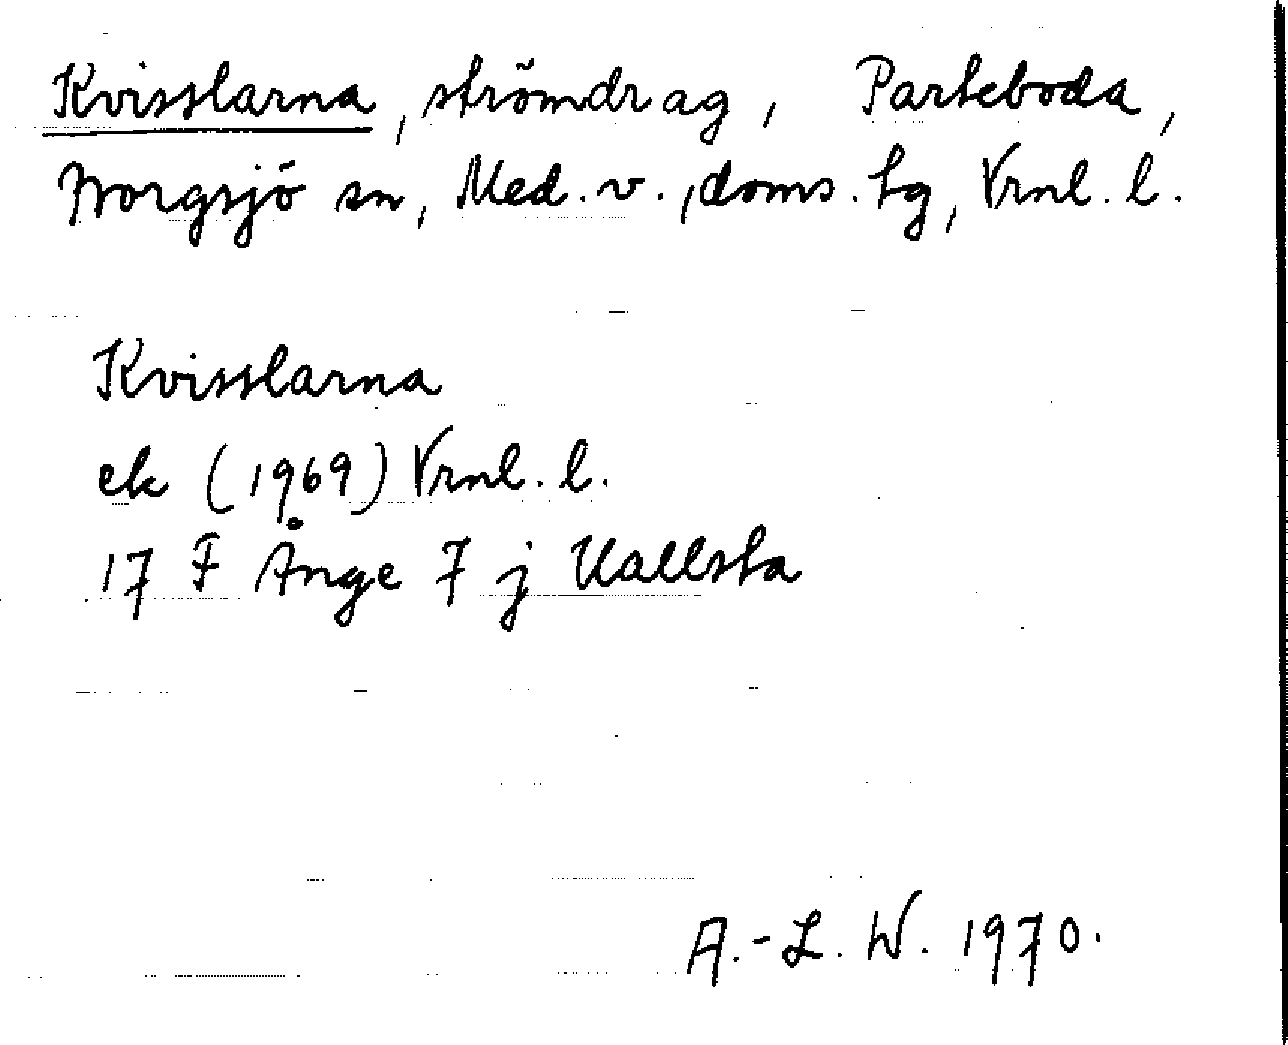 Kvisslarna, strömdrag, Parteboda,
Borgsjö sn, Med. v., doms. tg, Vrnl. l.
Kvisslarna
ek (1969) Vrnl. l.
17 F Ånge 7 j Hallsta
A.-L. W. 1970.